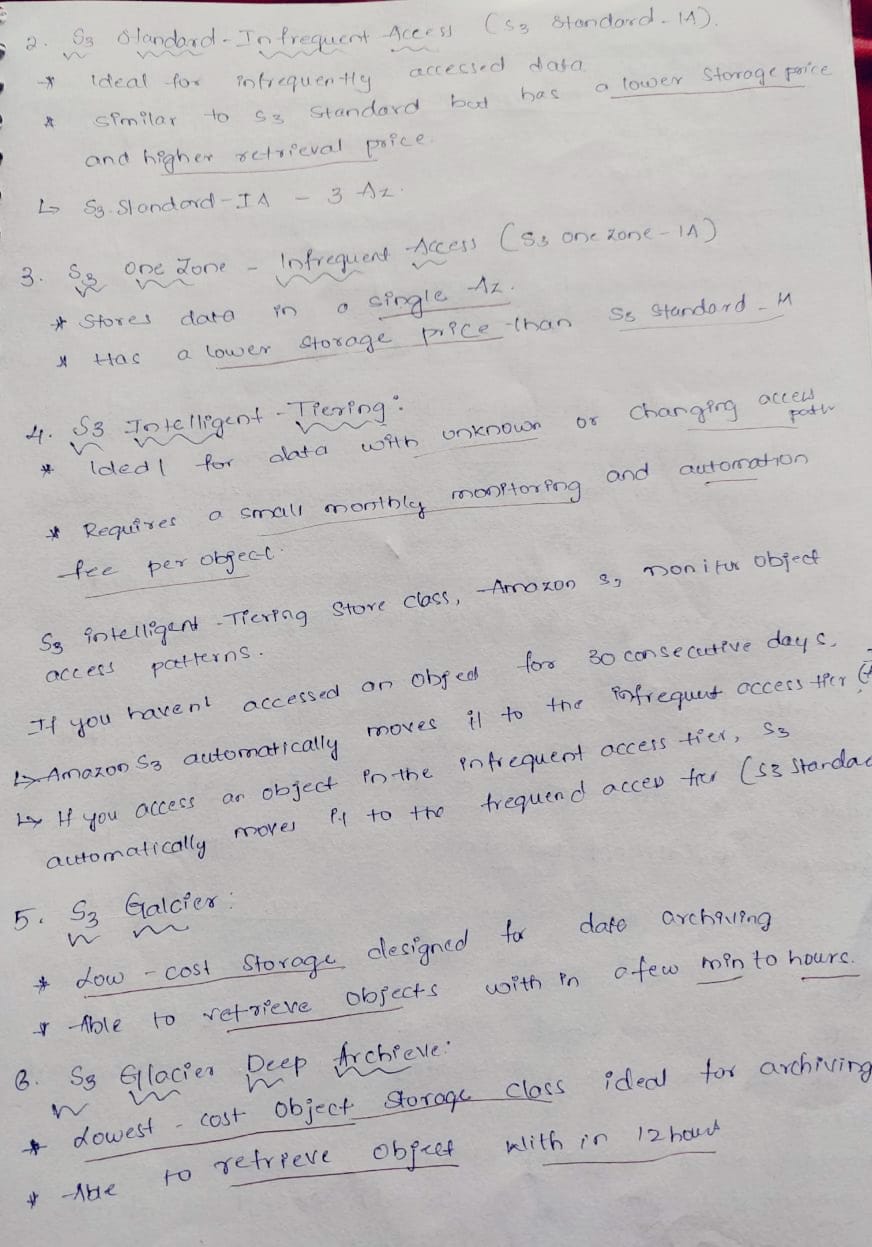 2. S3 Standard - Infrequent Access (S3 Standard - IA).
* Ideal for infrequently accessed data
* Similar to S3 Standard but has a lower storage price
and higher retrieval price.
↳ S3. Standard - IA - 3 Az.
3. S3 One Zone - Infrequent Access (S3 one zone - IA)
* Stores data in a single Az.
* Has a lower storage price than S3 Standard - IA
4. S3 Intelligent - Tiering:
* Ideal for data with unknown or changing access
path
* Requires a small monthly monitoring and automation
fee per object.
S3 intelligent - Tiering Store class, Amazon S3 monitor object
access patterns.
If you havent accessed an object for 30 consecutive days,
↳ Amazon S3 automatically moves it to the infrequent access tier (
↳ If you access an object in the infrequent access tier, S3
automatically moves it to the frequend acces tier (S3 Standa
5. S3 Galcier:
* Low - cost Storage designed for data archiving
* Able to retrieve objects with in a few min to hours.
6. S3 Glacier Deep Archieve:
* Lowest - cost Object Storage class ideal for archiving
* Able to retrieve object with in 12 hours